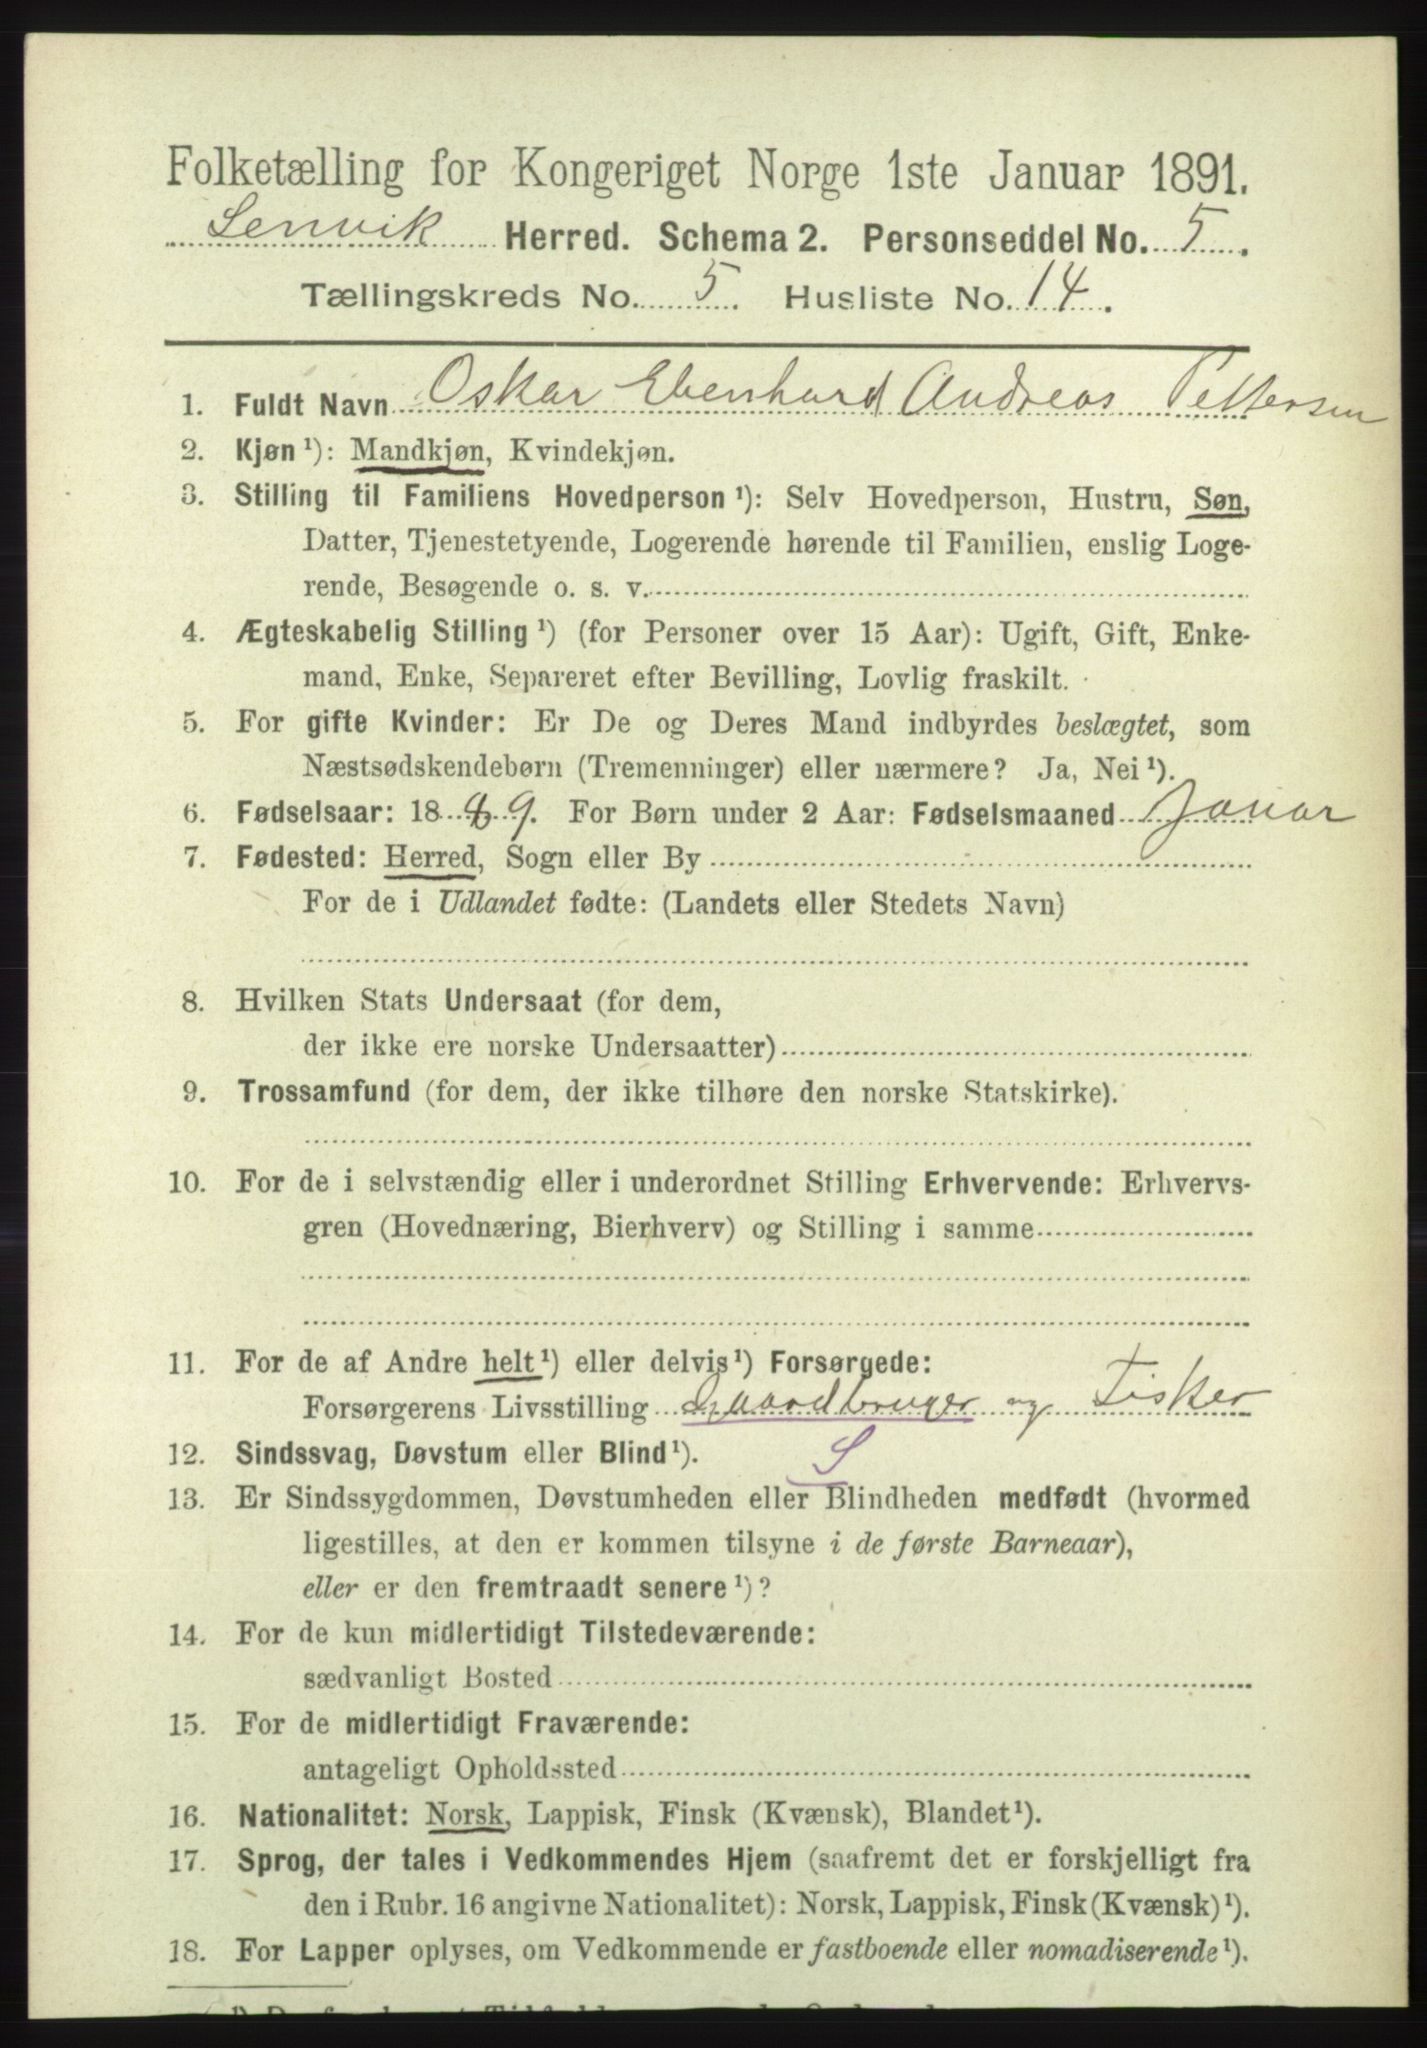 Folketælling for Kongeriget Norge 1ste Januar 1891.
Lenvik Herred. Schema 2. Personseddel No. 5.
Tællingskreds No. 5. Husliste No. 14.
1. Fuldt Navn Oskar Ebenhard Andreas Pettersen
2. Kjøn ¹): Mandkjøn, Kvindekjøn.
3. Stilling til Familiens Hovedperson ¹): Selv Hovedperson, Hustru, Søn,
Datter, Tjenestetyende, Logerende hørende til Familien, enslig Loge-
rende, Besøgende o. s. v.
4. Ægteskabelig Stilling ¹) (for Personer over 15 Aar): Ugift, Gift, Enke-
mand, Enke, Separeret efter Bevilling, Lovlig fraskilt.
5. For gifte Kvinder: Er De og Deres Mand indbyrdes beslægtet, som
Næstsødskendebørn (Tremenninger) eller nærmere? Ja, Nei ¹).
6. Fødselsaar: 1889. For Børn under 2 Aar: Fødselsmaaned Januar
7. Fødested: Herred, Sogn eller By
For de i Udlandet fødte: (Landets eller Stedets Navn)
8. Hvilken Stats Undersaat (for dem,
der ikke ere norske Undersaatter)
9. Trossamfund (for dem, der ikke tilhøre den norske Statskirke).
10. For de i selvstændig eller i underordnet Stilling Erhvervende: Erhvervs-
gren (Hovednæring, Bierhverv) og Stilling i samme
11. For de af Andre helt ¹) eller delvis ¹) Forsørgede:
Forsørgerens Livsstilling Gaardbruger og Fisker
12. Sindssvag, Døvstum eller Blind ¹). S
13. Er Sindssygdommen, Døvstumheden eller Blindheden medfødt (hvormed
ligestilles, at den er kommen tilsyne i de første Barneaar),
eller er den fremtraadt senere ¹)?
14. For de kun midlertidigt Tilstedeværende:
sædvanligt Bosted
15. For de midlertidigt Fraværende:
antageligt Opholdssted
16. Nationalitet: Norsk, Lappisk, Finsk (Kvænsk), Blandet ¹).
17. Sprog, der tales i Vedkommendes Hjem (saafremt det er forskjelligt fra
den i Rubr. 16 angivne Nationalitet): Norsk, Lappisk, Finsk (Kvænsk) ¹).
18. For Lapper oplyses, om Vedkommende er fastboende eller nomadiserende ¹).